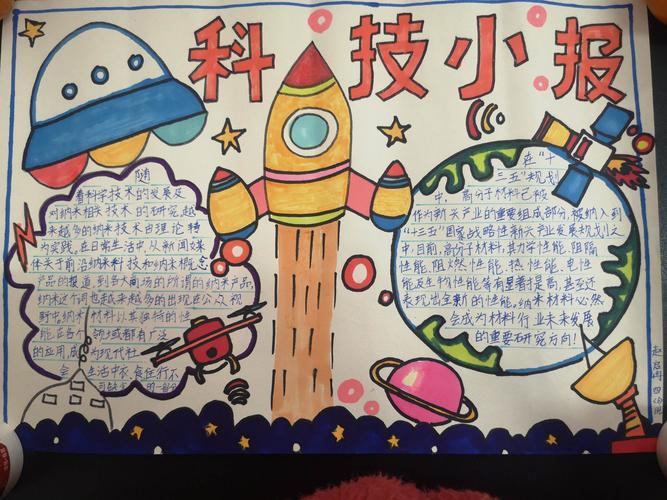 科技小报
随
着科学技术的发展及
对纳米相关技术的研究,越
来越多的纳米技术由理论转
为实践,在日常生活中,从新闻媒
体关于前沿纳米科技和纳米概念
产品的报道,到各大商场的所谓的纳米产品,
纳米这个词也越来越多的出现在公众视
野中。纳米材料以其独特的性
能,在各个领域都有广泛
的应用,成为现代社
会生活中衣食住行不
在“十
三五”规划
中,高分子材料已被
作为新兴产业的重要组成部分,被纳入到
“十三五”国家战略性新兴产业发展规划之
中。目前,高分子材料,其力学性能、阻隔
性能、阻燃性能、热性能、电性
能及生物性能等有显著提高,甚至还
表现出全新的性能。纳米材料必然
会成为材料行业未来发展
的重要研究方向!